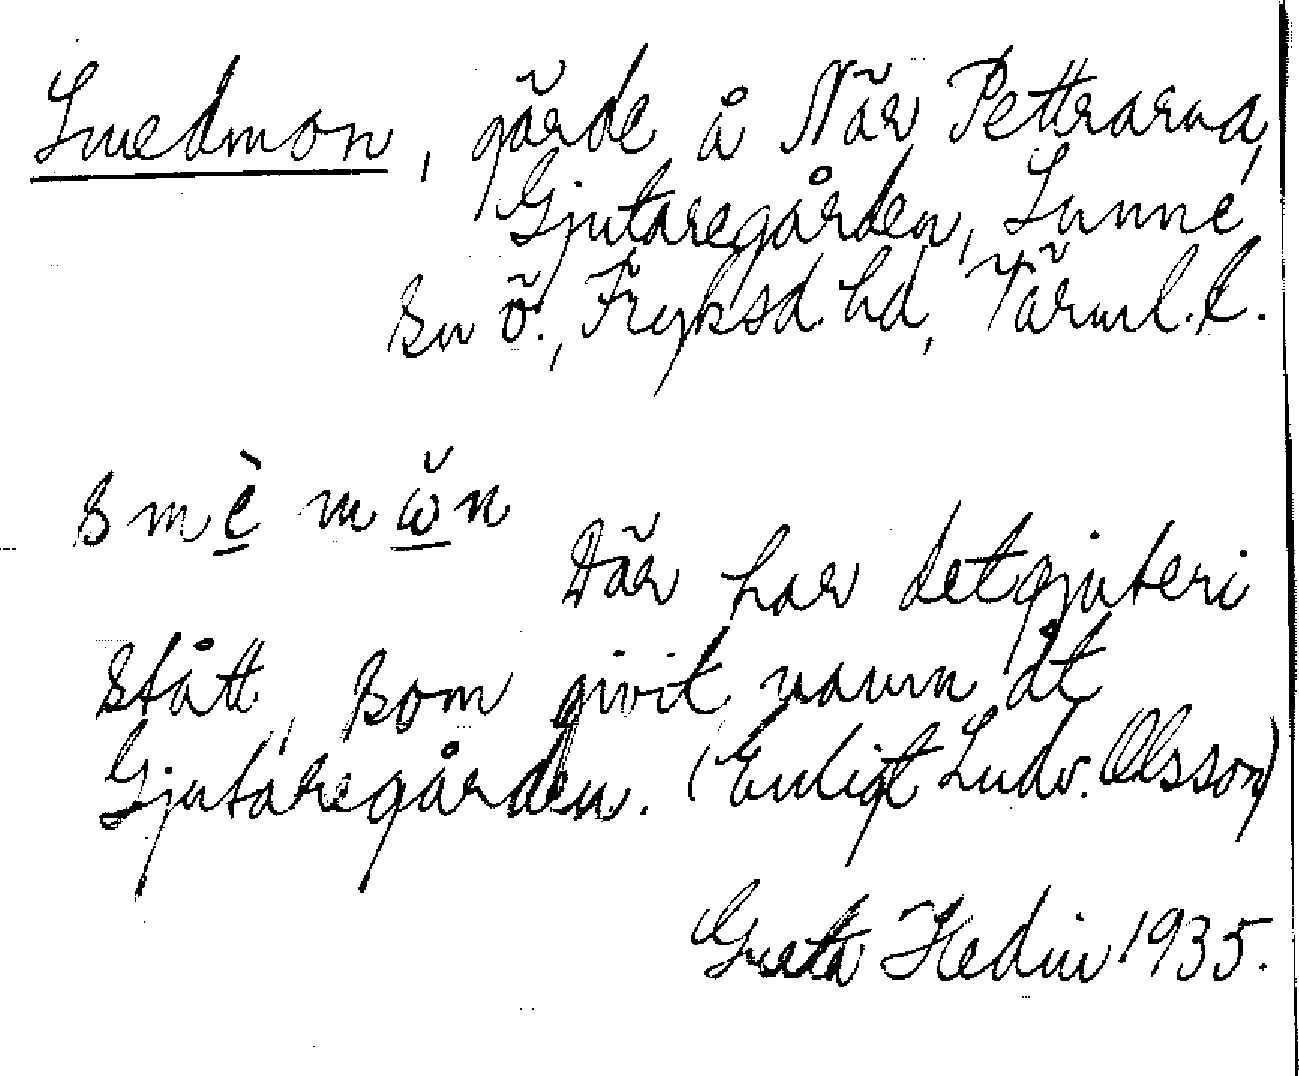 Smedmon, gärde å När Pettrarna,
Gjutaregården, Sunne
sn Ö., Fryksd. hd, Värml. l.
smè mω̆n
Där har det gjuteri
stått, som givit namn åt
Gjutaregården. (Enligt Ludv. Olsson)
Greta Hedin 1935.